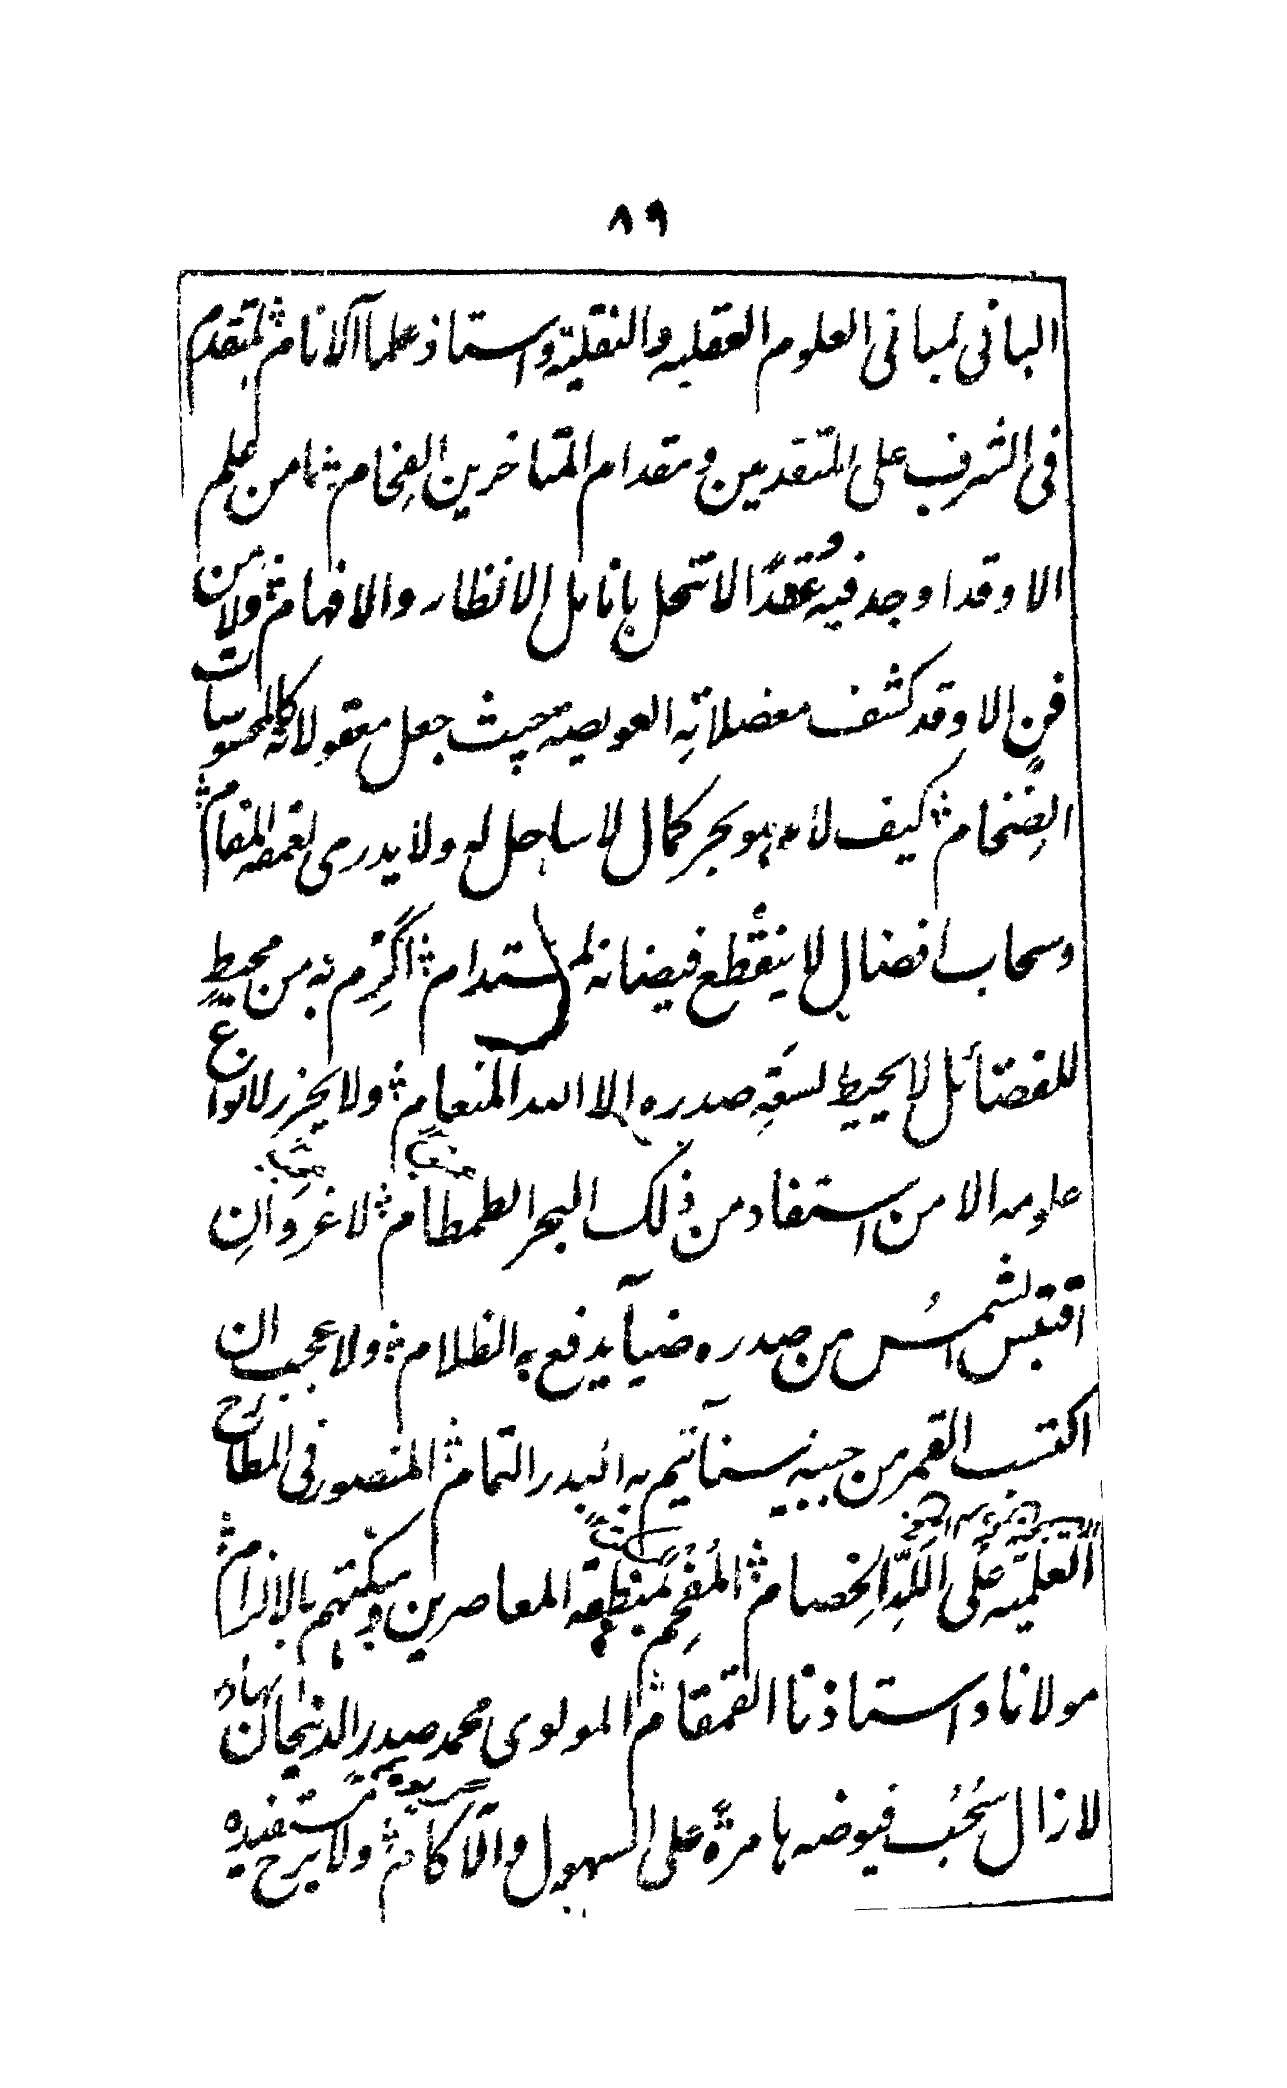 ٨٩
البانى لمبانى العلوم العقليه والنقلية واستاذ علماء الانام ؞ لمتقدم
فى الشرف على المتقدمين ومقدام المتاخرين الفِخام ؞ ما من علم
الا وقد اوجد فيه عُقَدًا لا تنحل بانامل الانظار والافهام ؞ ولا من
فنٍ الا وقد كشف معضلاتِه العويصه بحيث جعل معقولاته كالمحسوسات
الضِخام ؞ كيف لا وهو بحر كمال لا ساحل له ولا يدرى لغمقه المقام ؞
وسحاب افضال لا ينقطع فيضانه المستدام ؞ اكرِم به من محيطٍ
للفضائل لا يحيط لسعَةِ صدره الا الله المنعام ؞ ولا يحرز لانواع
علومه الا من استفاد من ذلك البحر الطمطام ؞ لا غرو انِ
اقتبس الشمسُ من صدره ضياءً يدفع به الظلام ؞ ولا عجب ان
اكتسب القمر من جبينه سناءً يتم به البدر التمام ؞ المنصور فى المطارح
العلميّه على اللُدِّ الخِصام ؞ المُفحِم بمنطقه المعاصرين وبكتهم بالالزام ؞
مولانا واستاذنا القمقام ؞ المولوى محمد صدر الدينخان بهادر
لا زال سُحُب فيوضه هامرةً على السهول والآكام ؞ ولا برح مستفيده